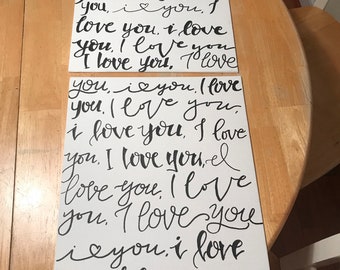 you, i ♥ you, I
love you, i love
you, I love you
I love you, I love
you, i ♥ you, I love
you, I love you,
i love you, I love
you, I love you, I
love you, I love
you, I love you
i ♥ you, i love